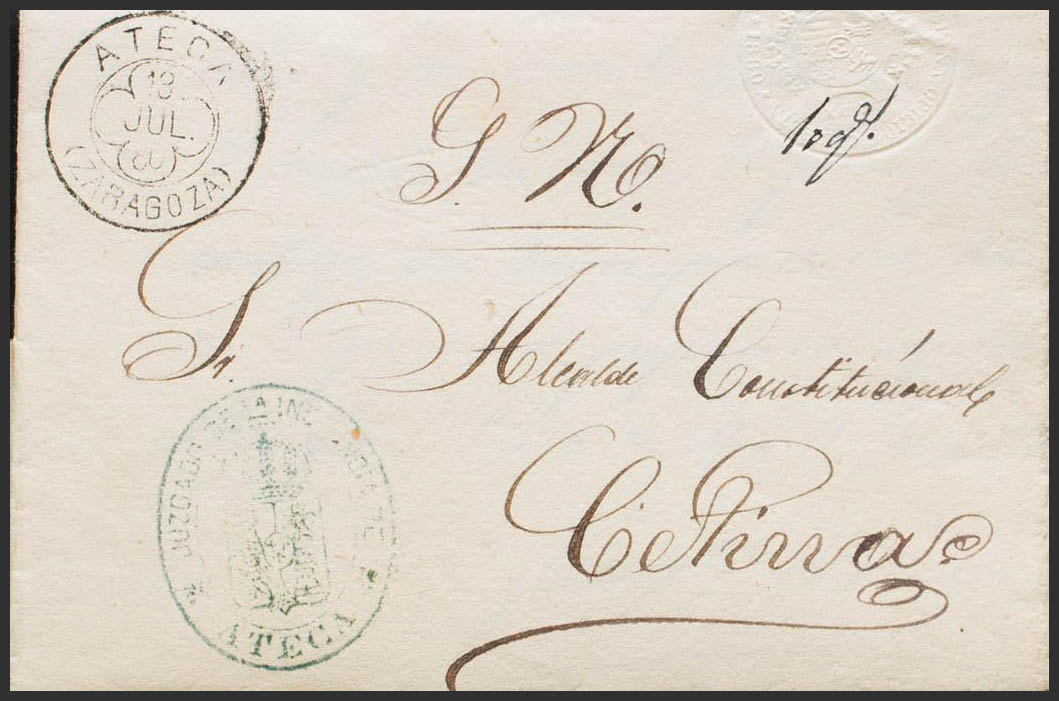 ATECA
18
JUL.
(ZARAGOZA)
S. N.
Sr. Alcalde Constitucional
Cetina
JUZGADO DE LA INST
ATECA